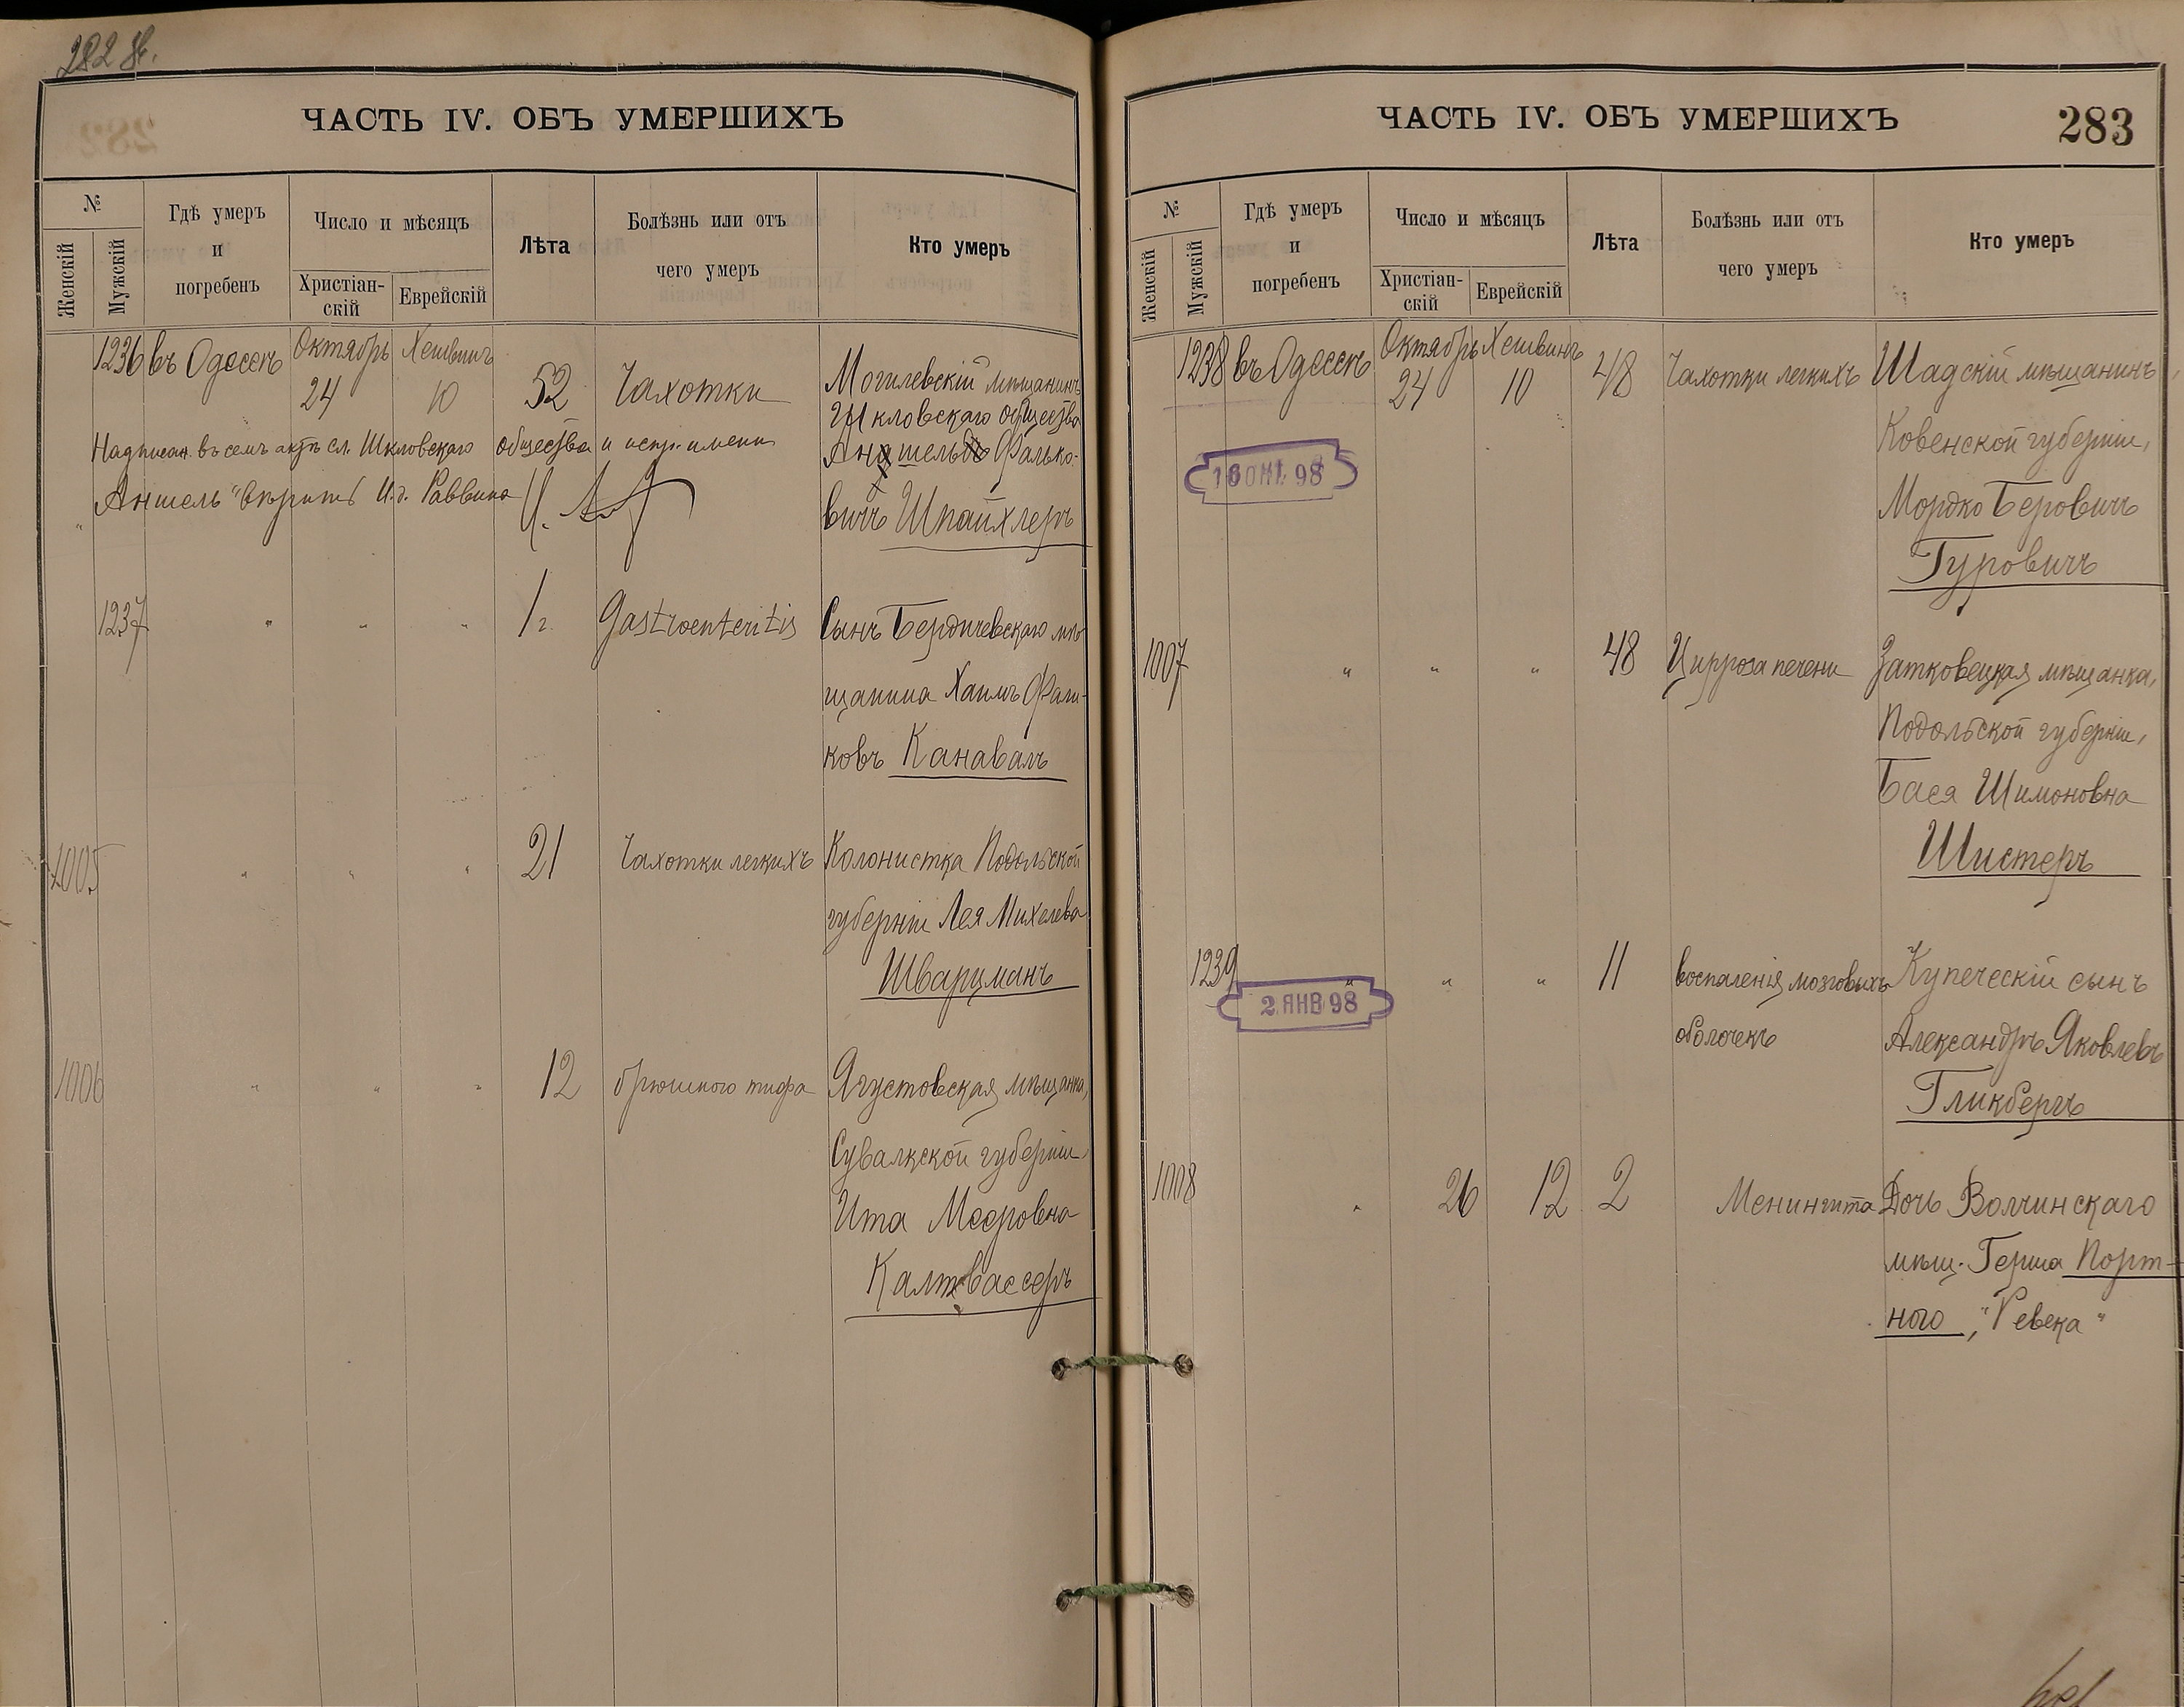 ЧАСТЬ IV. ОБЪ УМЕРШИХЪ
№
Женскій
Мужскій
Гдѣ умеръ
и
погребенъ
Число и мѣсяцъ
Христіан-
скій
Еврейскій
Лѣта
Болѣзнь или отъ
чего умеръ
Кто умеръ
1236 въ Одессѣ Октябрь Хешвинъ
24 10 52 Чахотки
Могилевскій мѣщанинъ
Шкловскаго общества
Аншель Фалько-
вичъ Шпайхлеръ
Надписан. въ семъ актѣ сл. Шкловскаго общества и испр. имени
Аншель" вѣрить И. д. Раввина
1237 " " " 1/2 Gastroenteritis Сынъ Бердичевскаго мѣ-
щанина Хаимъ Фали-
ковъ Канавалъ
1005 " " " 21 Чахотки легкихъ Колонистка Подольской
губерніи Лея Михелева
Шварцманъ
1006 " " " 12 брюшного тифа Ягустовская мѣщанка,
Сувалкской губерніи,
Ита Мееровна
Калтвассеръ
ЧАСТЬ IV. ОБЪ УМЕРШИХЪ 283
№
Женскій
Мужскій
Гдѣ умеръ
и
погребенъ
Число и мѣсяцъ
Христіан-
скій
Еврейскій
Лѣта
Болѣзнь или отъ
чего умеръ
Кто умеръ
1238 въ Одессѣ Октябрь Хешвинъ
24 10 48 Чахотки легкихъ Шадскій мѣщанинъ,
Ковенской губерніи,
Мордко Беровичъ
Гуровичъ
98
1007 " " " 48 Цирроза печени Затковецкая мѣщанка,
Подольской губерніи,
Бася Шимоновна
Шистеръ
1239 " " " 11 воспаленія мозговыхъ
оболочекъ
Купеческій сынъ
Александръ Яковлевъ
Гликбергъ
2 ЯНВ 98
1008 " 26 12 2 Менингита Дочь Волчинскаго
мѣщ. Герша Порт-
ного, "Ревека"